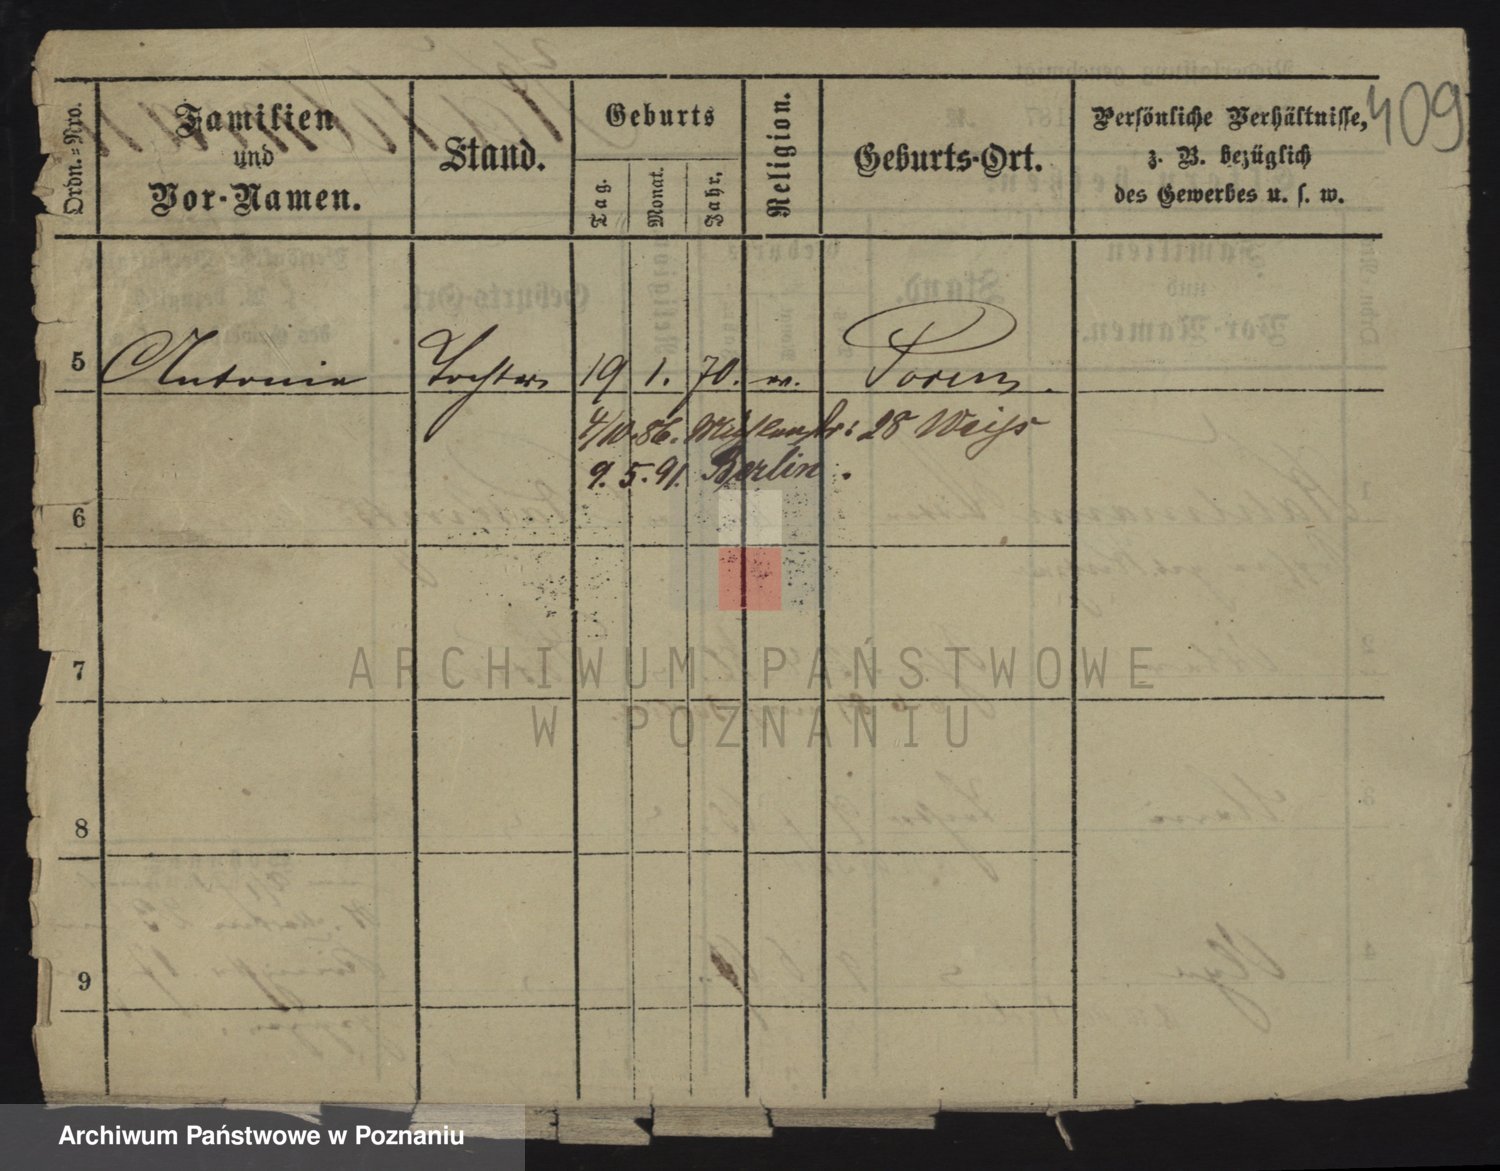 409
Ordn.-Nro.
Familien
und
Vor-Namen.
Stand.
Geburts
Tag.
Monat.
Jahr.
Religion.
Geburts-Ort.
Persönliche Verhältnisse,
z. B. bezüglich
des Gewerbes u. s. w.
5 Antonie Tochter 19 1. 70. ev. Posen
4/10. 86. 28 Weiss
9. 5. 91. Berlin.
6
7
8
9
ARCHIWUM PAŃSTWOWE
W POZNANIU
Archiwum Państwowe w Poznaniu